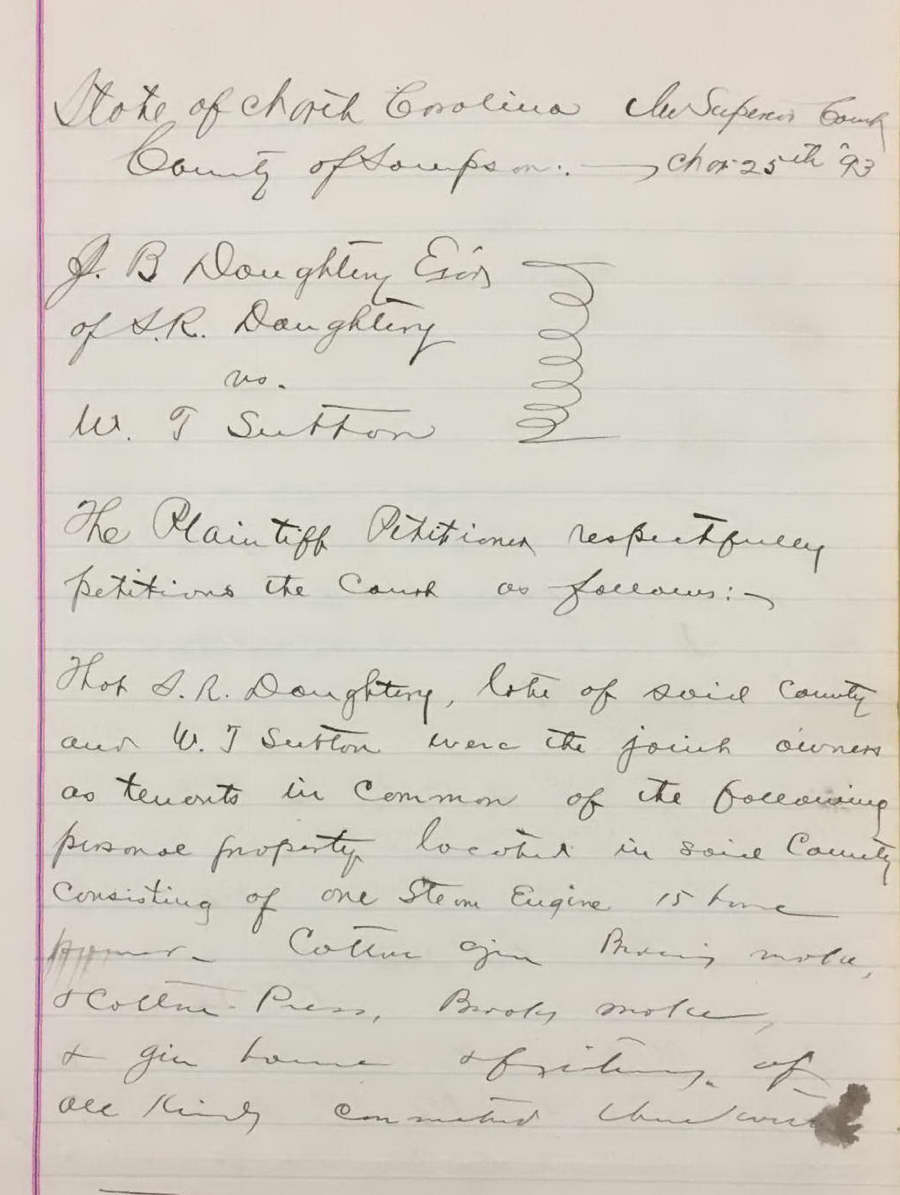 State of North Carolina In Superior Court
County of Sampson:. — Nov 25th '93
J. B Daughtery Exr
of S.R. Daughtery
vs.
W. T Sutton
The Plaintiff Petitioner respectfully
petitions the Court as follows:-
That S. R. Daughtery, late of said County
and W. T Sutton were the joint owners
as tenants in Common of the following
personal property located in said County
Consisting of one Steam Engine 15 horse
power - Cotton gin make,
& Cotton Press, Brooks make,
& gin house & fixtures of
all Kinds connected therewith